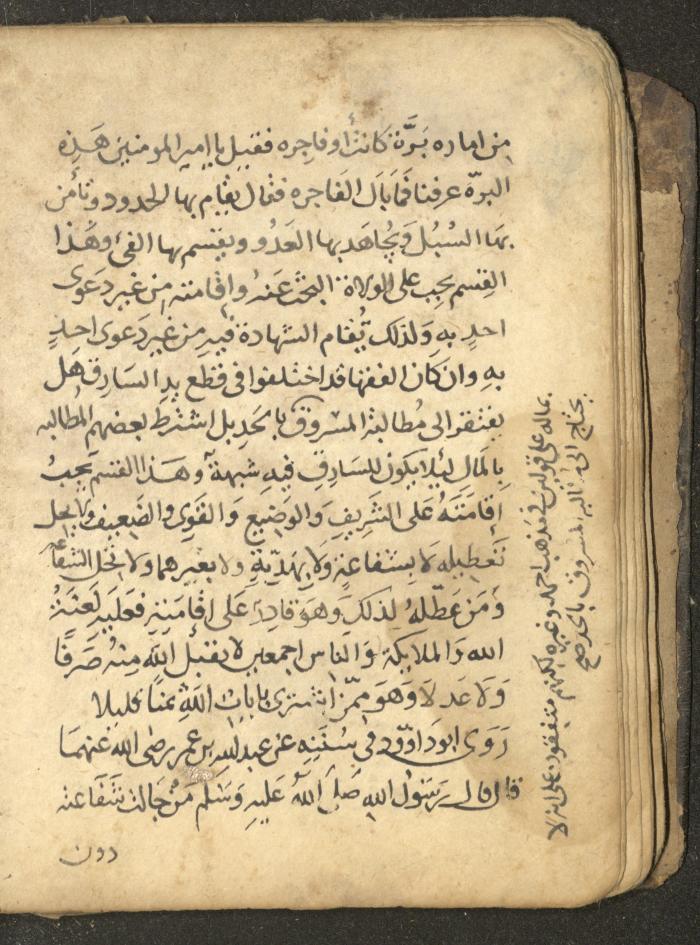 من اماره بَرَّة كانت أو فاجره فقيل يا امير المومنين هَذِه
البرّة عرفناها فَمَا بَال الفَاجره فقال يقام بها الحدود وتأمن
بها السُبُل وَيُجَاهد بها العَدُو ويقسم بها الفئ وهَذا
القِسم يجب على الولاة البحث عَنهُ واقامته من غير دَعوى
احدٍ بهِ وَلذلك تُقام الشهادة فيهِ من غير دَعوى احدٍ
بهِ وان كان الفقها قد اختلفوا فى قطع يد السَارق هَل
يفتقر الى مُطالبة المسْروق بالحَدِ بل اشترط بعضهم المُطالبه
بِالمَال لِيَلا يكون للسَارقِ فيهِ شبهة وهَذا القسم يجبُ
إقامَتَهُ عَلى الشريفِ وَالوَضيع وَالقَوِى والضَعِيف وَلا يحل
تَعطِيله لا بشفاعةٍ وَلا بِهَدِيّةٍ ولا بغيرهما ولا تحل الشفاعة
وَمَن عَطّلهُ لذلك وهوَ قادِر عَلى اقامَتِهِ فعَليهِ لَعنَةُ
الله وَالملايكة وَالناس اجمعين لا يقبل الله مِنهُ صَرفًا
وَلا عَدلا وَهوَ مِمّن اشترى بايات اللهِ ثمناً قليلا
رَوَى ابو داوود فى سُنَنِهِ عَن عبد الله بن عمر رضى الله عَنهمَا
قال قال رَسوُل الله صَلى اللهُ عَليهِ وَسَلم مَن حَالت شَفَاعته
دون
بماله على قولين فى مذهب احمد وغيره لكنهم متفقون على انه لا
يحتاج الى مُطالبة المسروق بالحد صح